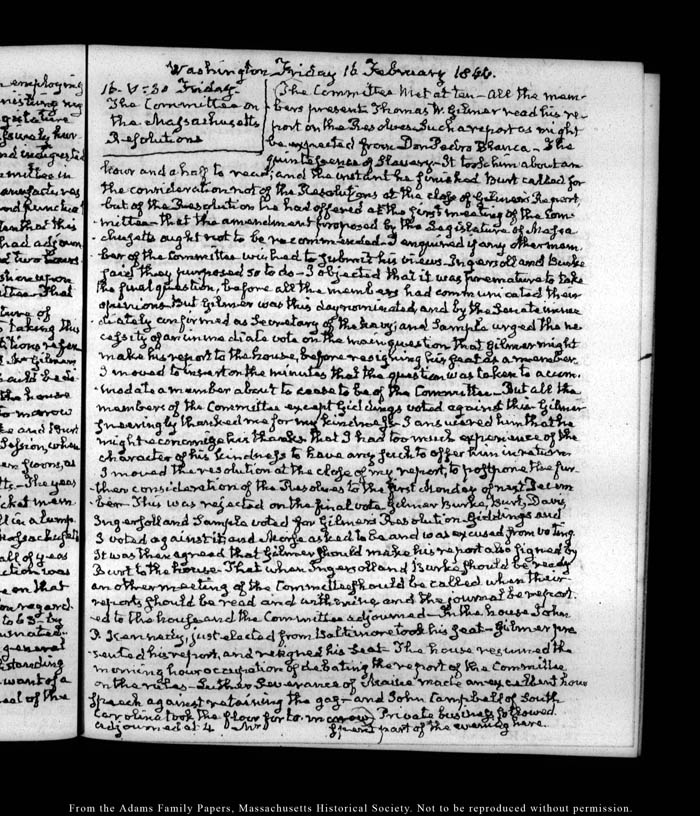 Washington Friday 16 February 1844.
16. V:30 Friday
The Committee on
the Massachusetts
Resolutions
The Committee met at ten - all the mem-
bers present Thomas W. Gilmer read his re-
port on the Resolves. Such a report as might
be expected from Don Pedro Blanca - The
quintessence of Slavery - It took him about an
hour and a half to read; and the instant he finished Burt called for
the consideration not of the Resolutions at the close of Gilmer's Report,
but of the Resolution he had offered at the first meeting of the Com-
mittee - that the amendment proposed by the Legislature of Massa
chusetts ought not to be recommended - I enquired if any other mem
ber of the Committee wished to submit his views. Ingersoll and Burke
said they purposed so to do - I objected that it was premature to take
the final question, before all the members had communicated their
opinions. But Gilmer was this day nominated and by the Senate imme
diately confirmed as Secretary of the Navy; and Sample urged the ne
cessity of an immediate vote on the main question that Gilmer might
make his report to the house, before resigning his seat as a member.
I moved to insert on the minutes that the question was taken to accom.
modate a member about to cease to be of the Committee - But all the
members of the Committee except Giddings voted against this Gilmer
sneeringly thanked me for my kindness - I answered him that he
might economize his thanks. that I had too much experience of the
character of his kindness to have any such to offer him in return.
I moved the resolution at the close of my report, to postpone the fur-
ther consideration of the Resolves to the first Monday of next Decem
ber - This was rejected on the final vote. Gilmer Burke, Burt, Davis,
Ingersoll and Sample voted for Gilmer's Resolution - Giddings and
I voted against it, and Morse asked to be and was excused from voting.
It was then agreed that Gilmer should make his report also signed by
Burt to the house. That when Ingersoll and Burke should be ready
another meeting of the Committee should be called when their
reports should be read and with mine and the journal be report.
ed to the house, and the Committee adjourned - In the house John
P. Kennedy, just elected from Baltimore took his seat - Gilmer pre
sented his report, and resigned his Seat - The house resumed the
morning hour occupation of debating the report of the Committee
on the rules - Luther Severance of Maine made an excellent hour
speech against retaining the gag - and John Campbell of South
Carolina took the floor for to-morrow. Private business followed.
adjourned at 4
Spent part of the evening here.
From the Adams Family Papers, Massachusetts Historical Society. Not to be reproduced without permission.